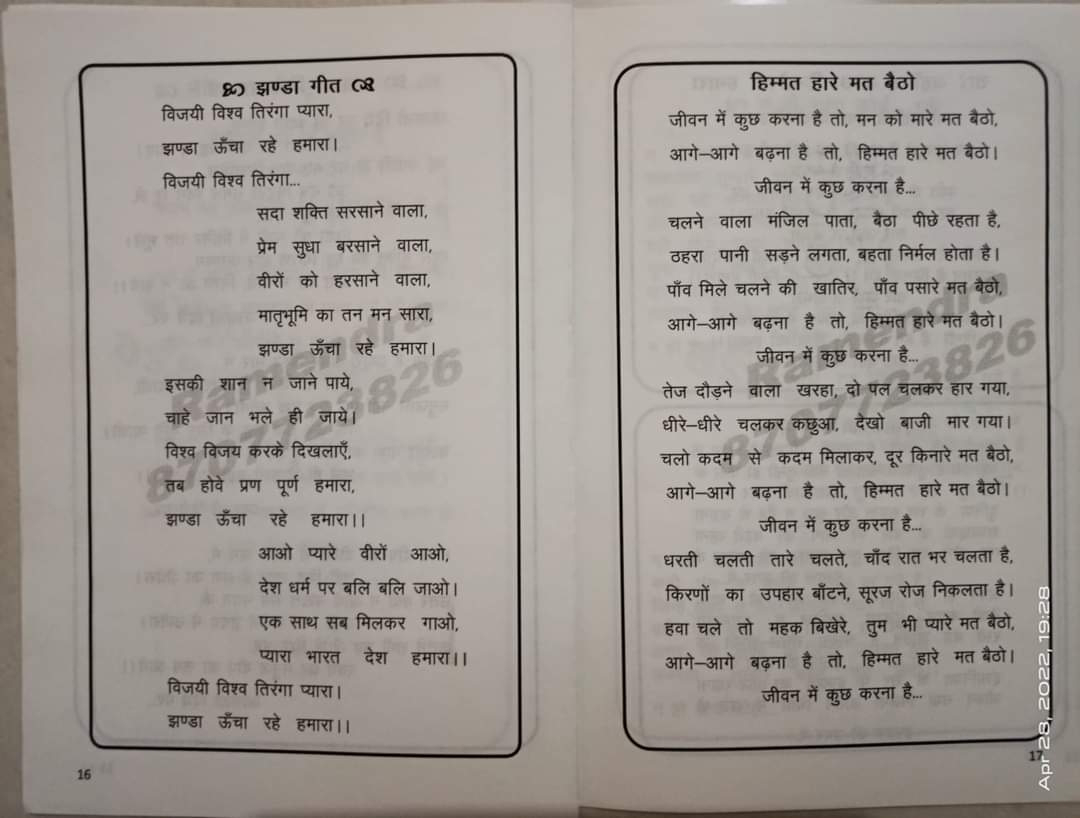 झण्डा गीत
विजयी विश्व तिरंगा प्यारा,
झण्डा ऊँचा रहे हमारा।
विजयी विश्व तिरंगा...
सदा शक्ति सरसाने वाला,
प्रेम सुधा बरसाने वाला,
वीरों को हरसाने वाला,
मातृभूमि का तन मन सारा,
झण्डा ऊँचा रहे हमारा।
इसकी शान न जाने पाये,
चाहे जान भले ही जाये।
विश्व विजय करके दिखलाएँ,
तब होवे प्रण पूर्ण हमारा,
झण्डा ऊँचा रहे हमारा।।
आओ प्यारे वीरों आओ,
देश धर्म पर बलि बलि जाओ।
एक साथ सब मिलकर गाओ,
प्यारा भारत देश हमारा।।
विजयी विश्व तिरंगा प्यारा।
झण्डा ऊँचा रहे हमारा।।
16
Ramendra
8707723826
हिम्मत हारे मत बैठो
जीवन में कुछ करना है तो, मन को मारे मत बैठो,
आगे–आगे बढ़ना है तो, हिम्मत हारे मत बैठो।
जीवन में कुछ करना है...
चलने वाला मंजिल पाता, बैठा पीछे रहता है,
ठहरा पानी सड़ने लगता, बहता निर्मल होता है।
पाँव मिले चलने की खातिर, पाँव पसारे मत बैठो,
आगे–आगे बढ़ना है तो, हिम्मत हारे मत बैठो।
जीवन में कुछ करना है...
तेज दौड़ने वाला खरहा, दो पल चलकर हार गया,
धीरे–धीरे चलकर कछुआ, देखो बाजी मार गया।
चलो कदम से कदम मिलाकर, दूर किनारे मत बैठो,
आगे–आगे बढ़ना है तो, हिम्मत हारे मत बैठो।
जीवन में कुछ करना है...
धरती चलती तारे चलते, चाँद रात भर चलता है,
किरणों का उपहार बाँटने, सूरज रोज निकलता है।
हवा चले तो महक बिखेरे, तुम भी प्यारे मत बैठो,
आगे–आगे बढ़ना है तो, हिम्मत हारे मत बैठो।
जीवन में कुछ करना है...
17
Ramendra
8707723826
Apr 28, 2022, 19:28